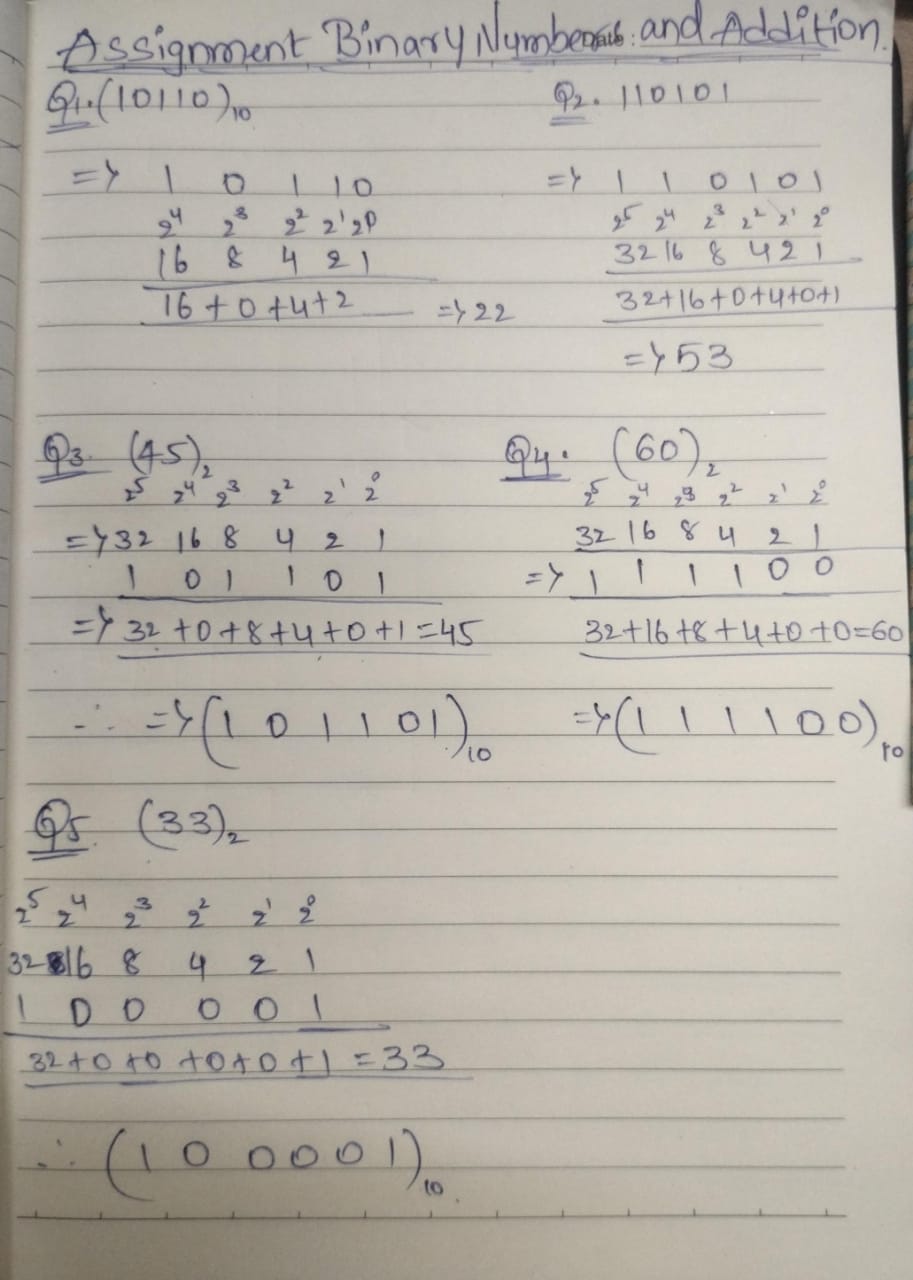 Assignment Binary Numbers: and Addition.
Q1. (10110)₁₀
=> 1 0 1 1 0
2⁴ 2³ 2² 2¹ 2⁰
16 8 4 2 1
16 + 0 + 4 + 2 => 22
Q2. 110101
=> 1 1 0 1 0 1
2⁵ 2⁴ 2³ 2² 2¹ 2⁰
32 16 8 4 2 1
32+16+0+4+0+1
=> 53
Q3. (45)₂
2⁵ 2⁴ 2³ 2² 2¹ 2⁰
=> 32 16 8 4 2 1
1 0 1 1 0 1
=> 32 + 0 + 8 + 4 + 0 + 1 = 45
∴ => (1 0 1 1 0 1)₁₀
Q4. (60)₂
2⁵ 2⁴ 2³ 2² 2¹ 2⁰
32 16 8 4 2 1
=> 1 1 1 1 0 0
32+16+8+4+0+0=60
=> (1 1 1 1 0 0)₁₀
Q5. (33)₂
2⁵ 2⁴ 2³ 2² 2¹ 2⁰
32 16 8 4 2 1
1 0 0 0 0 1
32+0+0+0+0+1 = 33
∴ (1 0 0 0 0 1)₁₀.